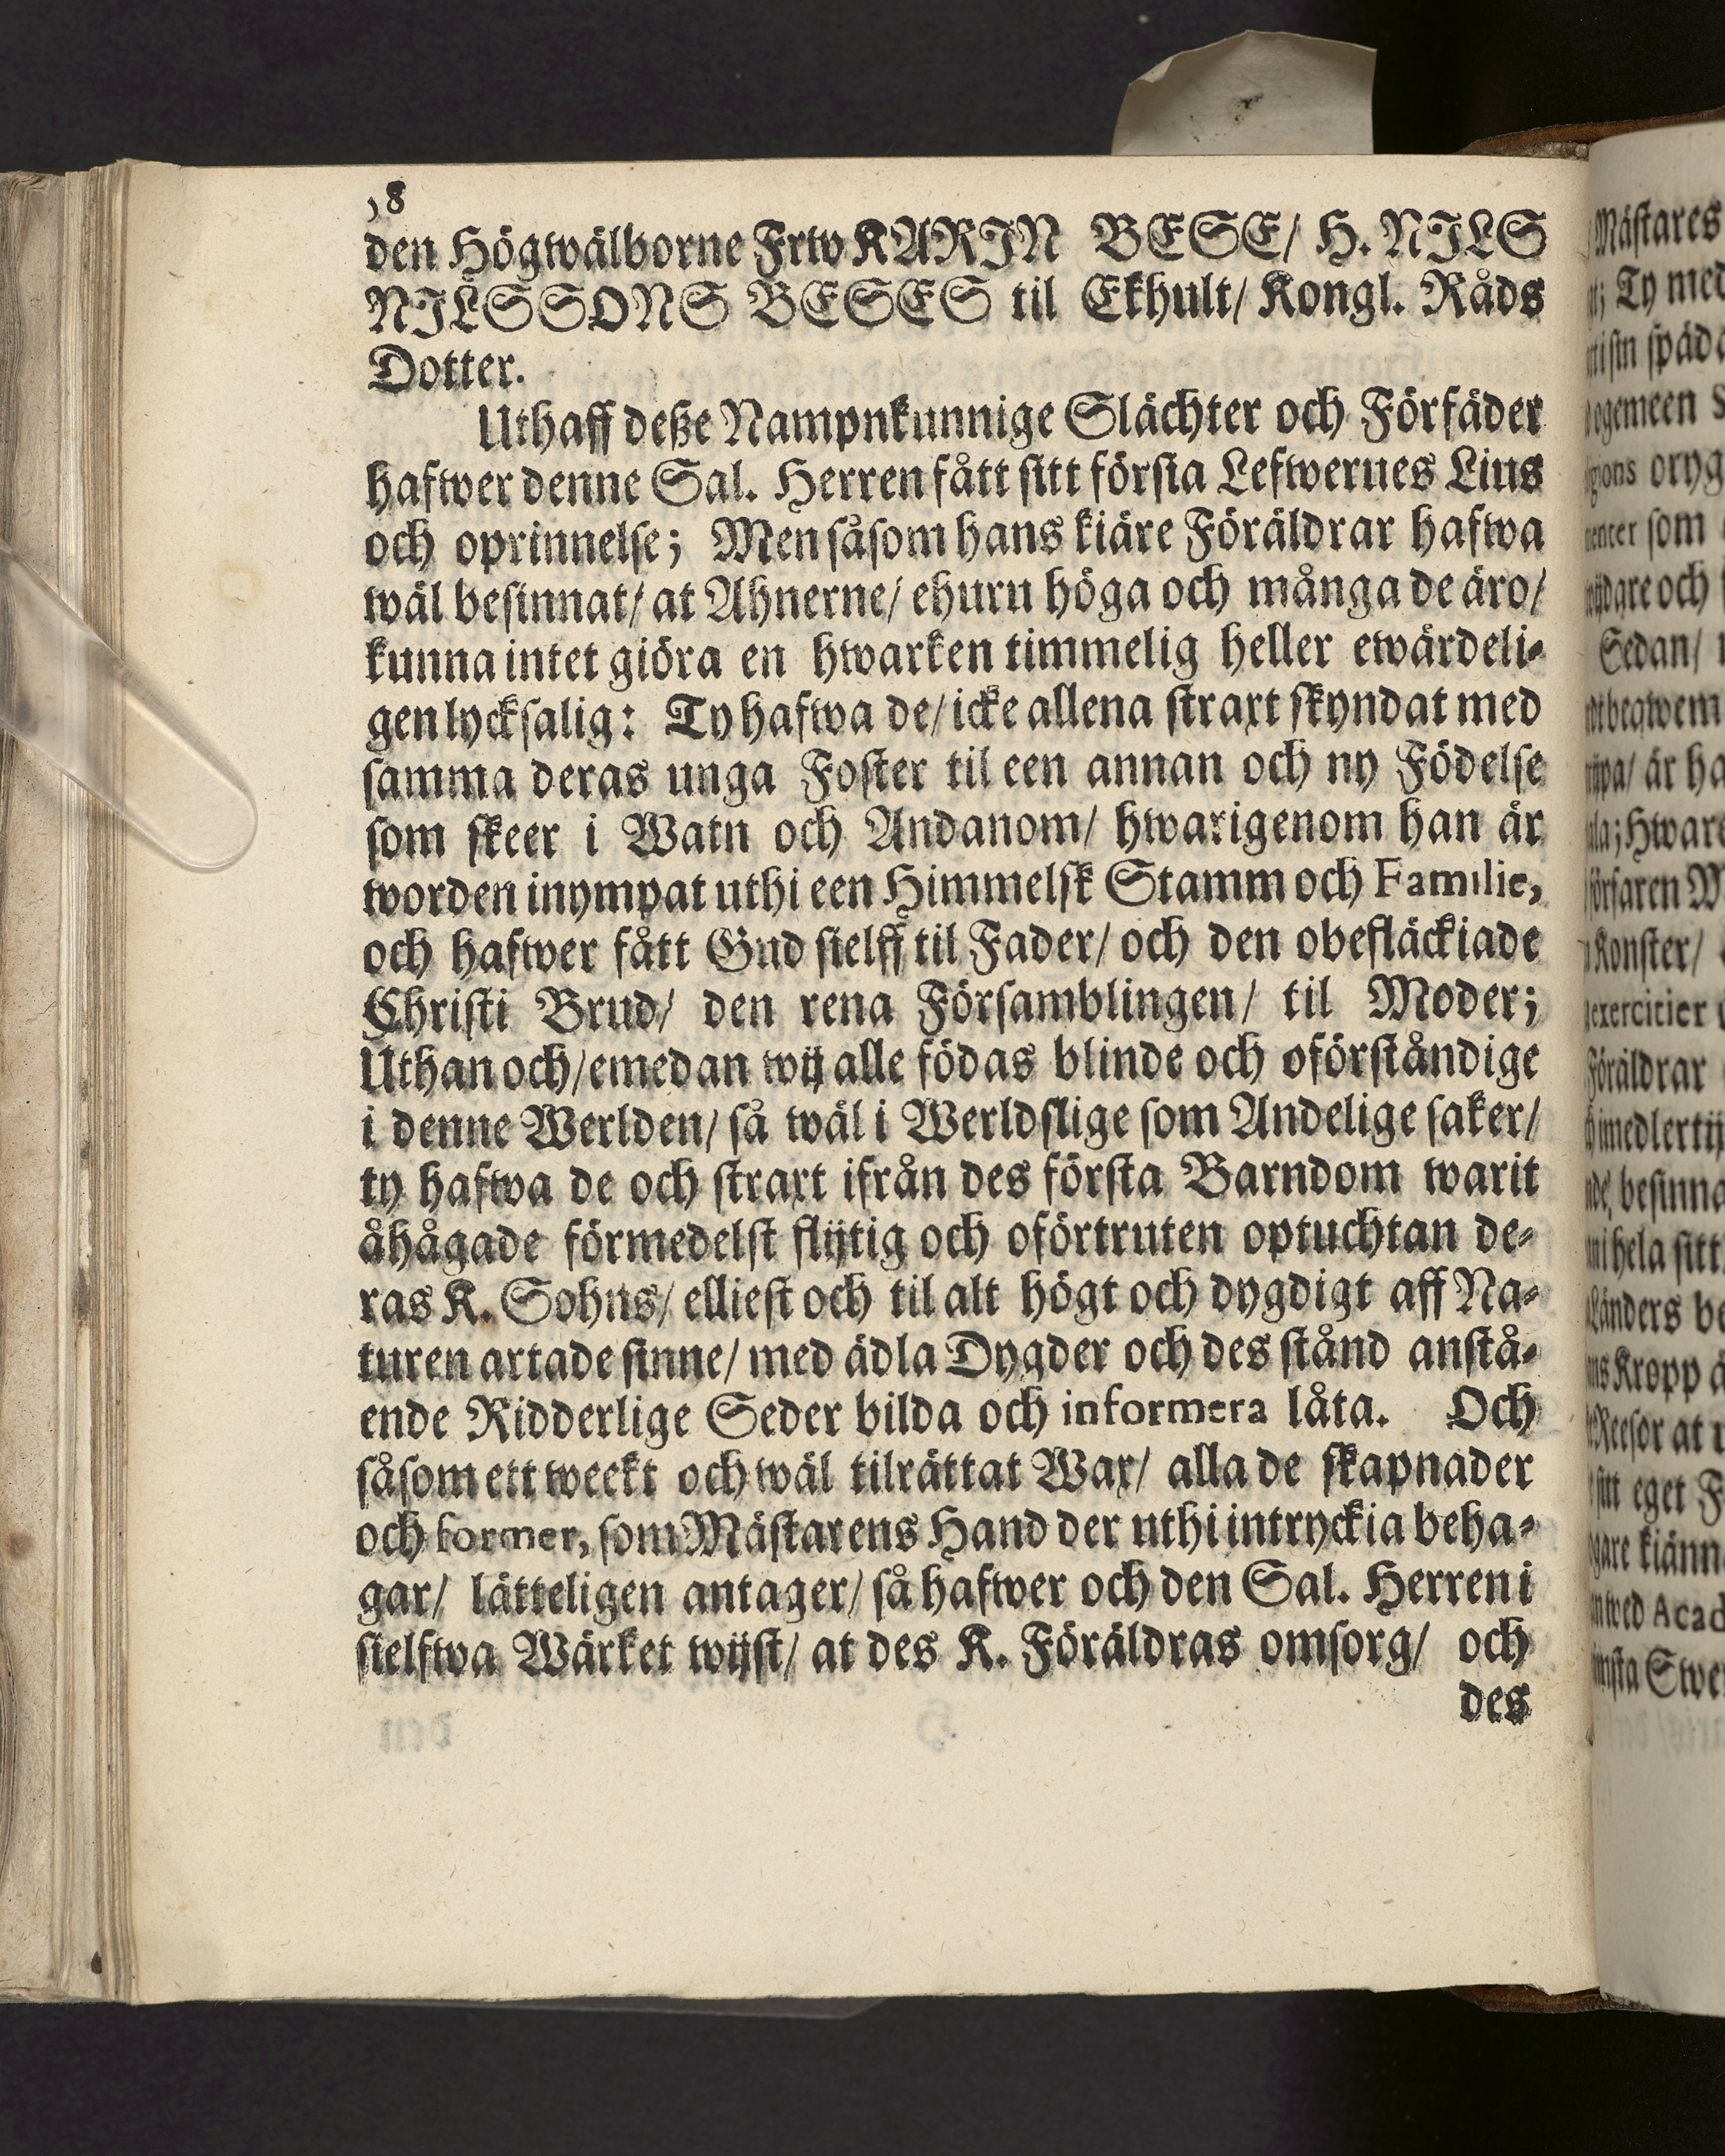 58
den Högwälborne Frw KARIN BESE/ H. NILS
NILSSONS BESES til Ekhult/ Kongl. Råds
Dotter.
Uthaff deße Nampnkunnige Slächter och Förfäder
hafwer denne Sal. Herren fått sitt första Lefwernes Lius
och oprinnelse; Men såsom hans kiäre Föräldrar hafwa
wäl besinnat/ at Ahnerne/ ehuru höga och många de äro/
kunna intet giöra en hwarken timmelig heller ewärdeli-
gen lycksalig: Ty hafwa de/ icke allena straxt skyndat med
samma deras unga Foster til een annan och ny Födelse
som skeer i Watn och Andanom/ hwarigenom han är
worden inympat uthi een Himmelsk Stamm och Familie,
och hafwer fått Gud sielff til Fader/ och den obefläckiade
Christi Brud/ den rena Församblingen/ til Moder;
Uthan och/ emedan wij alle födas blinde och oförståndige
i denne Werlden/ så wäl i Werldslige som Andelige saker/
ty hafwa de och straxt ifrån des första Barndom warit
åhågade förmedelst flijtig och oförtruten optuchtan de-
ras K. Sohns/ elliest och til alt högt och dygdigt aff Na-
turen artade sinne/ med ädla Dygder och des stånd anstå-
ende Ridderlige Seder bilda och informera låta. Och
såsom ett weekt och wäl tilrättat Wax/ alla de skapnader
och former, som Mästarens Hand der uthi intryckia beha-
gar/ lätteligen antager/ så hafwer och den Sal. Herren i
sielfwa Wärket wijst/ at des K. Föräldras omsorg/ och
des
Mästares
Ty med
späda
oryg
som
och
Sedan/
är ha
Konster/
exercitier
Föräldrar
besinna
hela sitt
Länders
Kropp
Reesor at
sitt eget
kiänn
wed Acad